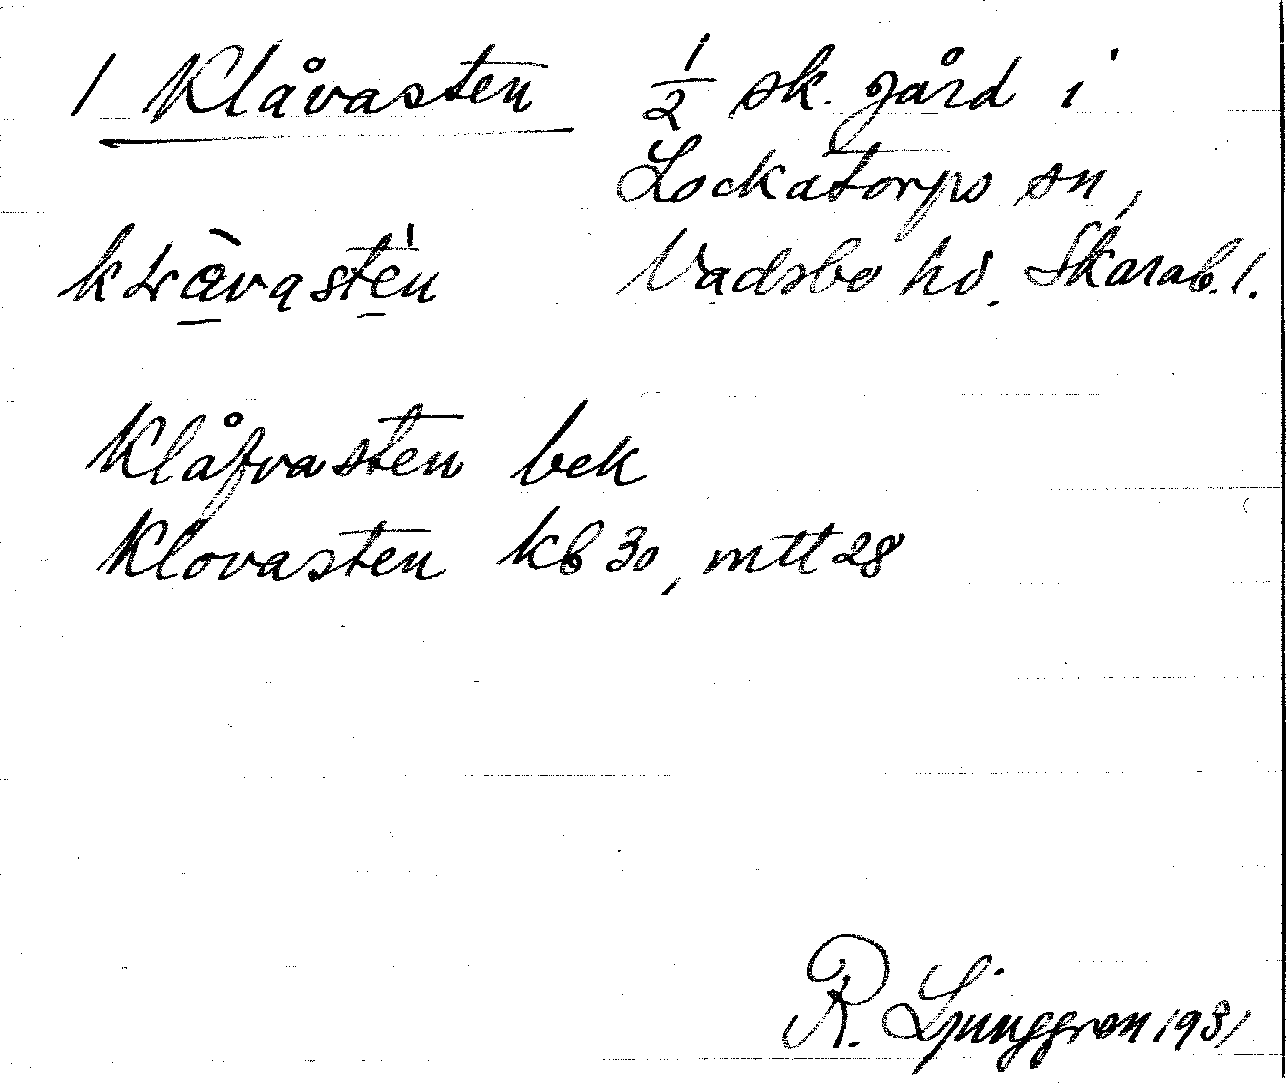 1 Klåvasten ½ sk. gård i
Lockatorps sn,
Vadsbo hd. Skarab. l.
Klåfvasten bek
Klovasten kb 30, mtt 28
R. Ljunggren 1931